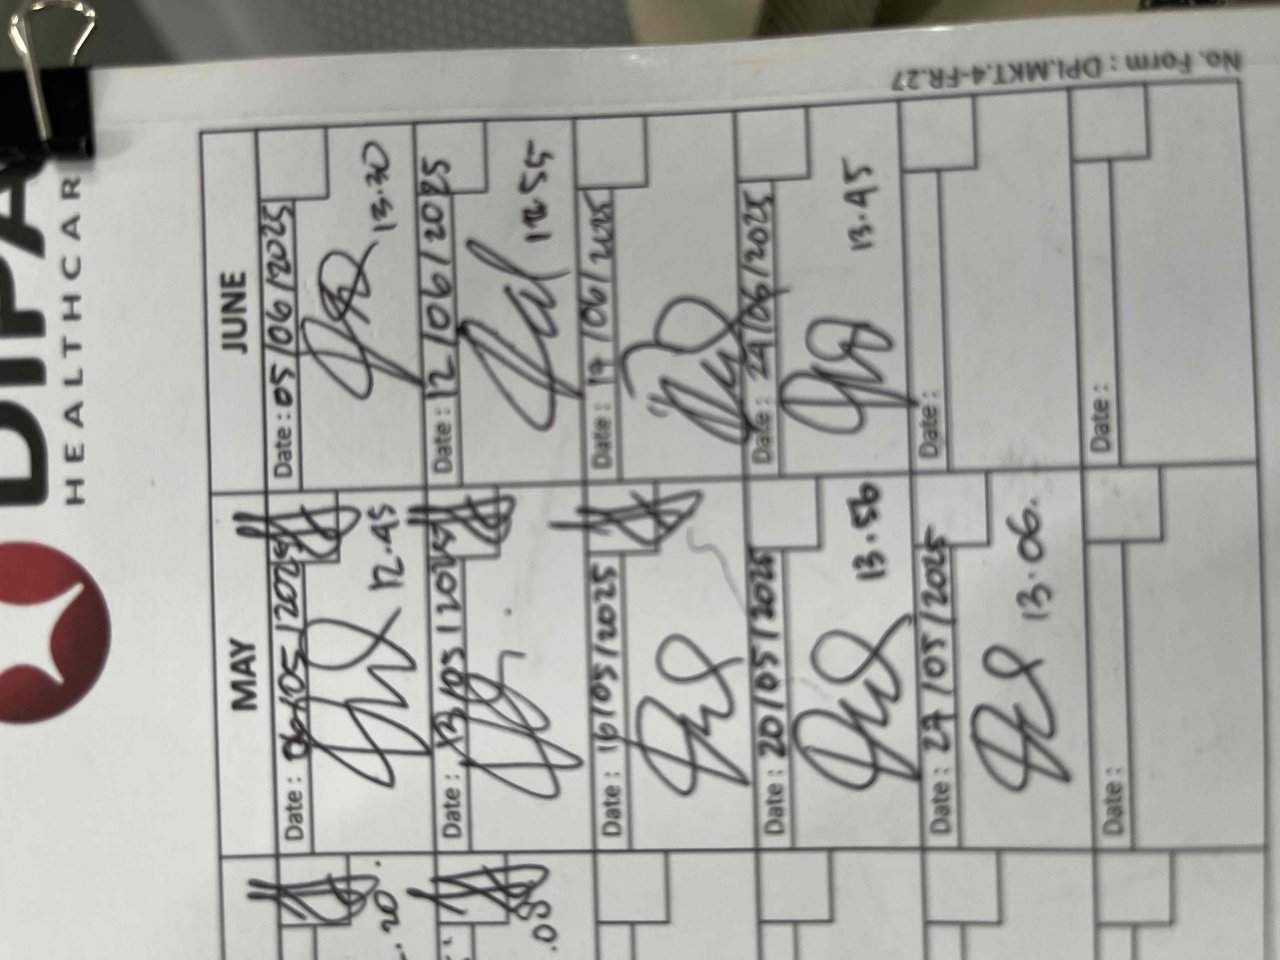 No. Form : DPI.MKT.4-FR.27
HEALTHCAR
MAY
Date : 06/05/2025
12.45
Date : 13/05/2025
Date : 16/05/2025
Date : 20/05/2025
13.56
Date : 27/05/2025
13.06.
Date :
JUNE
Date : 05/06/2025
13.30
Date : 12/06/2025
12.55
Date : 17/06/2025
Date : 24/06/2025
13.45
Date :
Date :